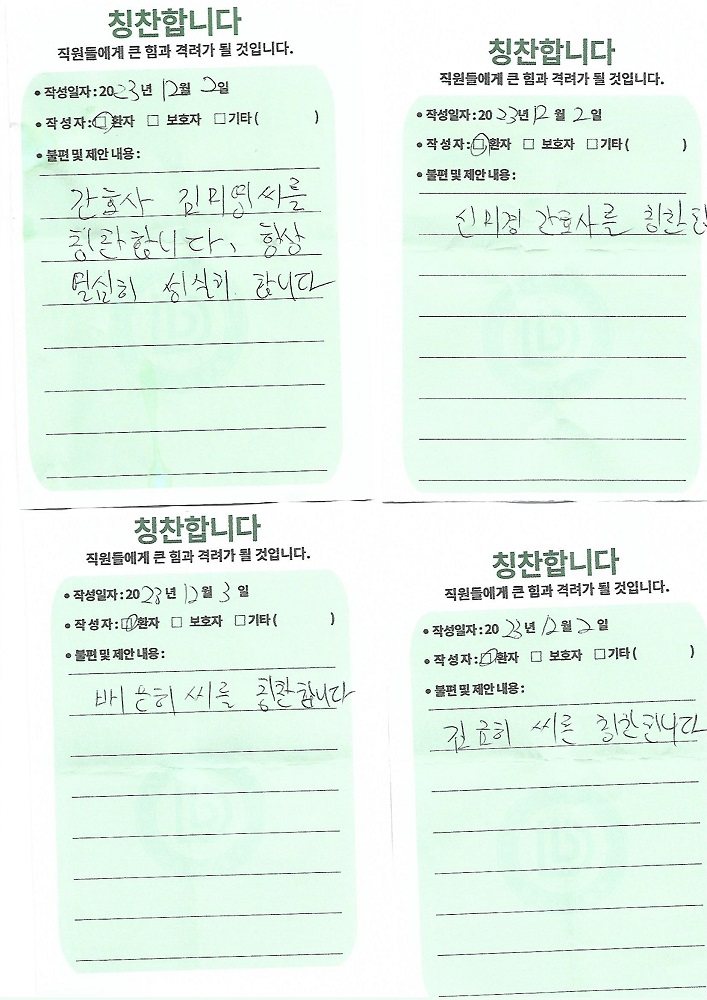 칭찬합니다
직원들에게 큰 힘과 격려가 될 것입니다.
• 작성일자 : 2023년 12월 2일
• 작 성 자 : □ 환자 □ 보호자 □ 기타 ( )
• 불편 및 제안 내용 :
간호사 김미영씨를
칭찬합니다, 항상
열심히 성실히 합니다
칭찬합니다
직원들에게 큰 힘과 격려가 될 것입니다.
• 작성일자 : 2023년 12월 2일
• 작 성 자 : □ 환자 □ 보호자 □ 기타 ( )
• 불편 및 제안 내용 :
신미경 간호사를 칭찬합
칭찬합니다
직원들에게 큰 힘과 격려가 될 것입니다.
• 작성일자 : 2023년 12월 3일
• 작 성 자 : □ 환자 □ 보호자 □ 기타 ( )
• 불편 및 제안 내용 :
배윤희 씨를 칭찬합니다
칭찬합니다
직원들에게 큰 힘과 격려가 될 것입니다.
• 작성일자 : 2023년 12월 2일
• 작 성 자 : □ 환자 □ 보호자 □ 기타 ( )
• 불편 및 제안 내용 :
금희 씨를 칭찬합니다